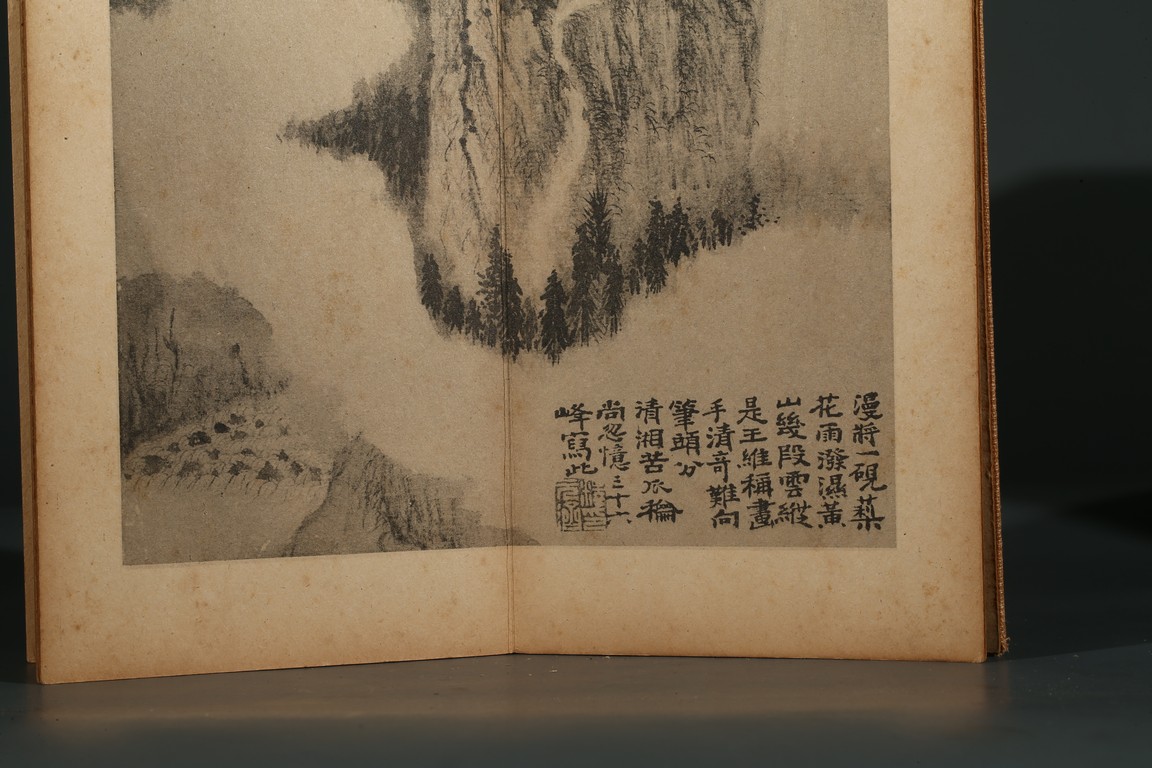 漫將一硯梨
花雨潑濕黃
山幾段雲縱
是王維稱畫
手清奇難向
筆頭分
清湘苦瓜龢
尚忽憶三十六
峰寫此